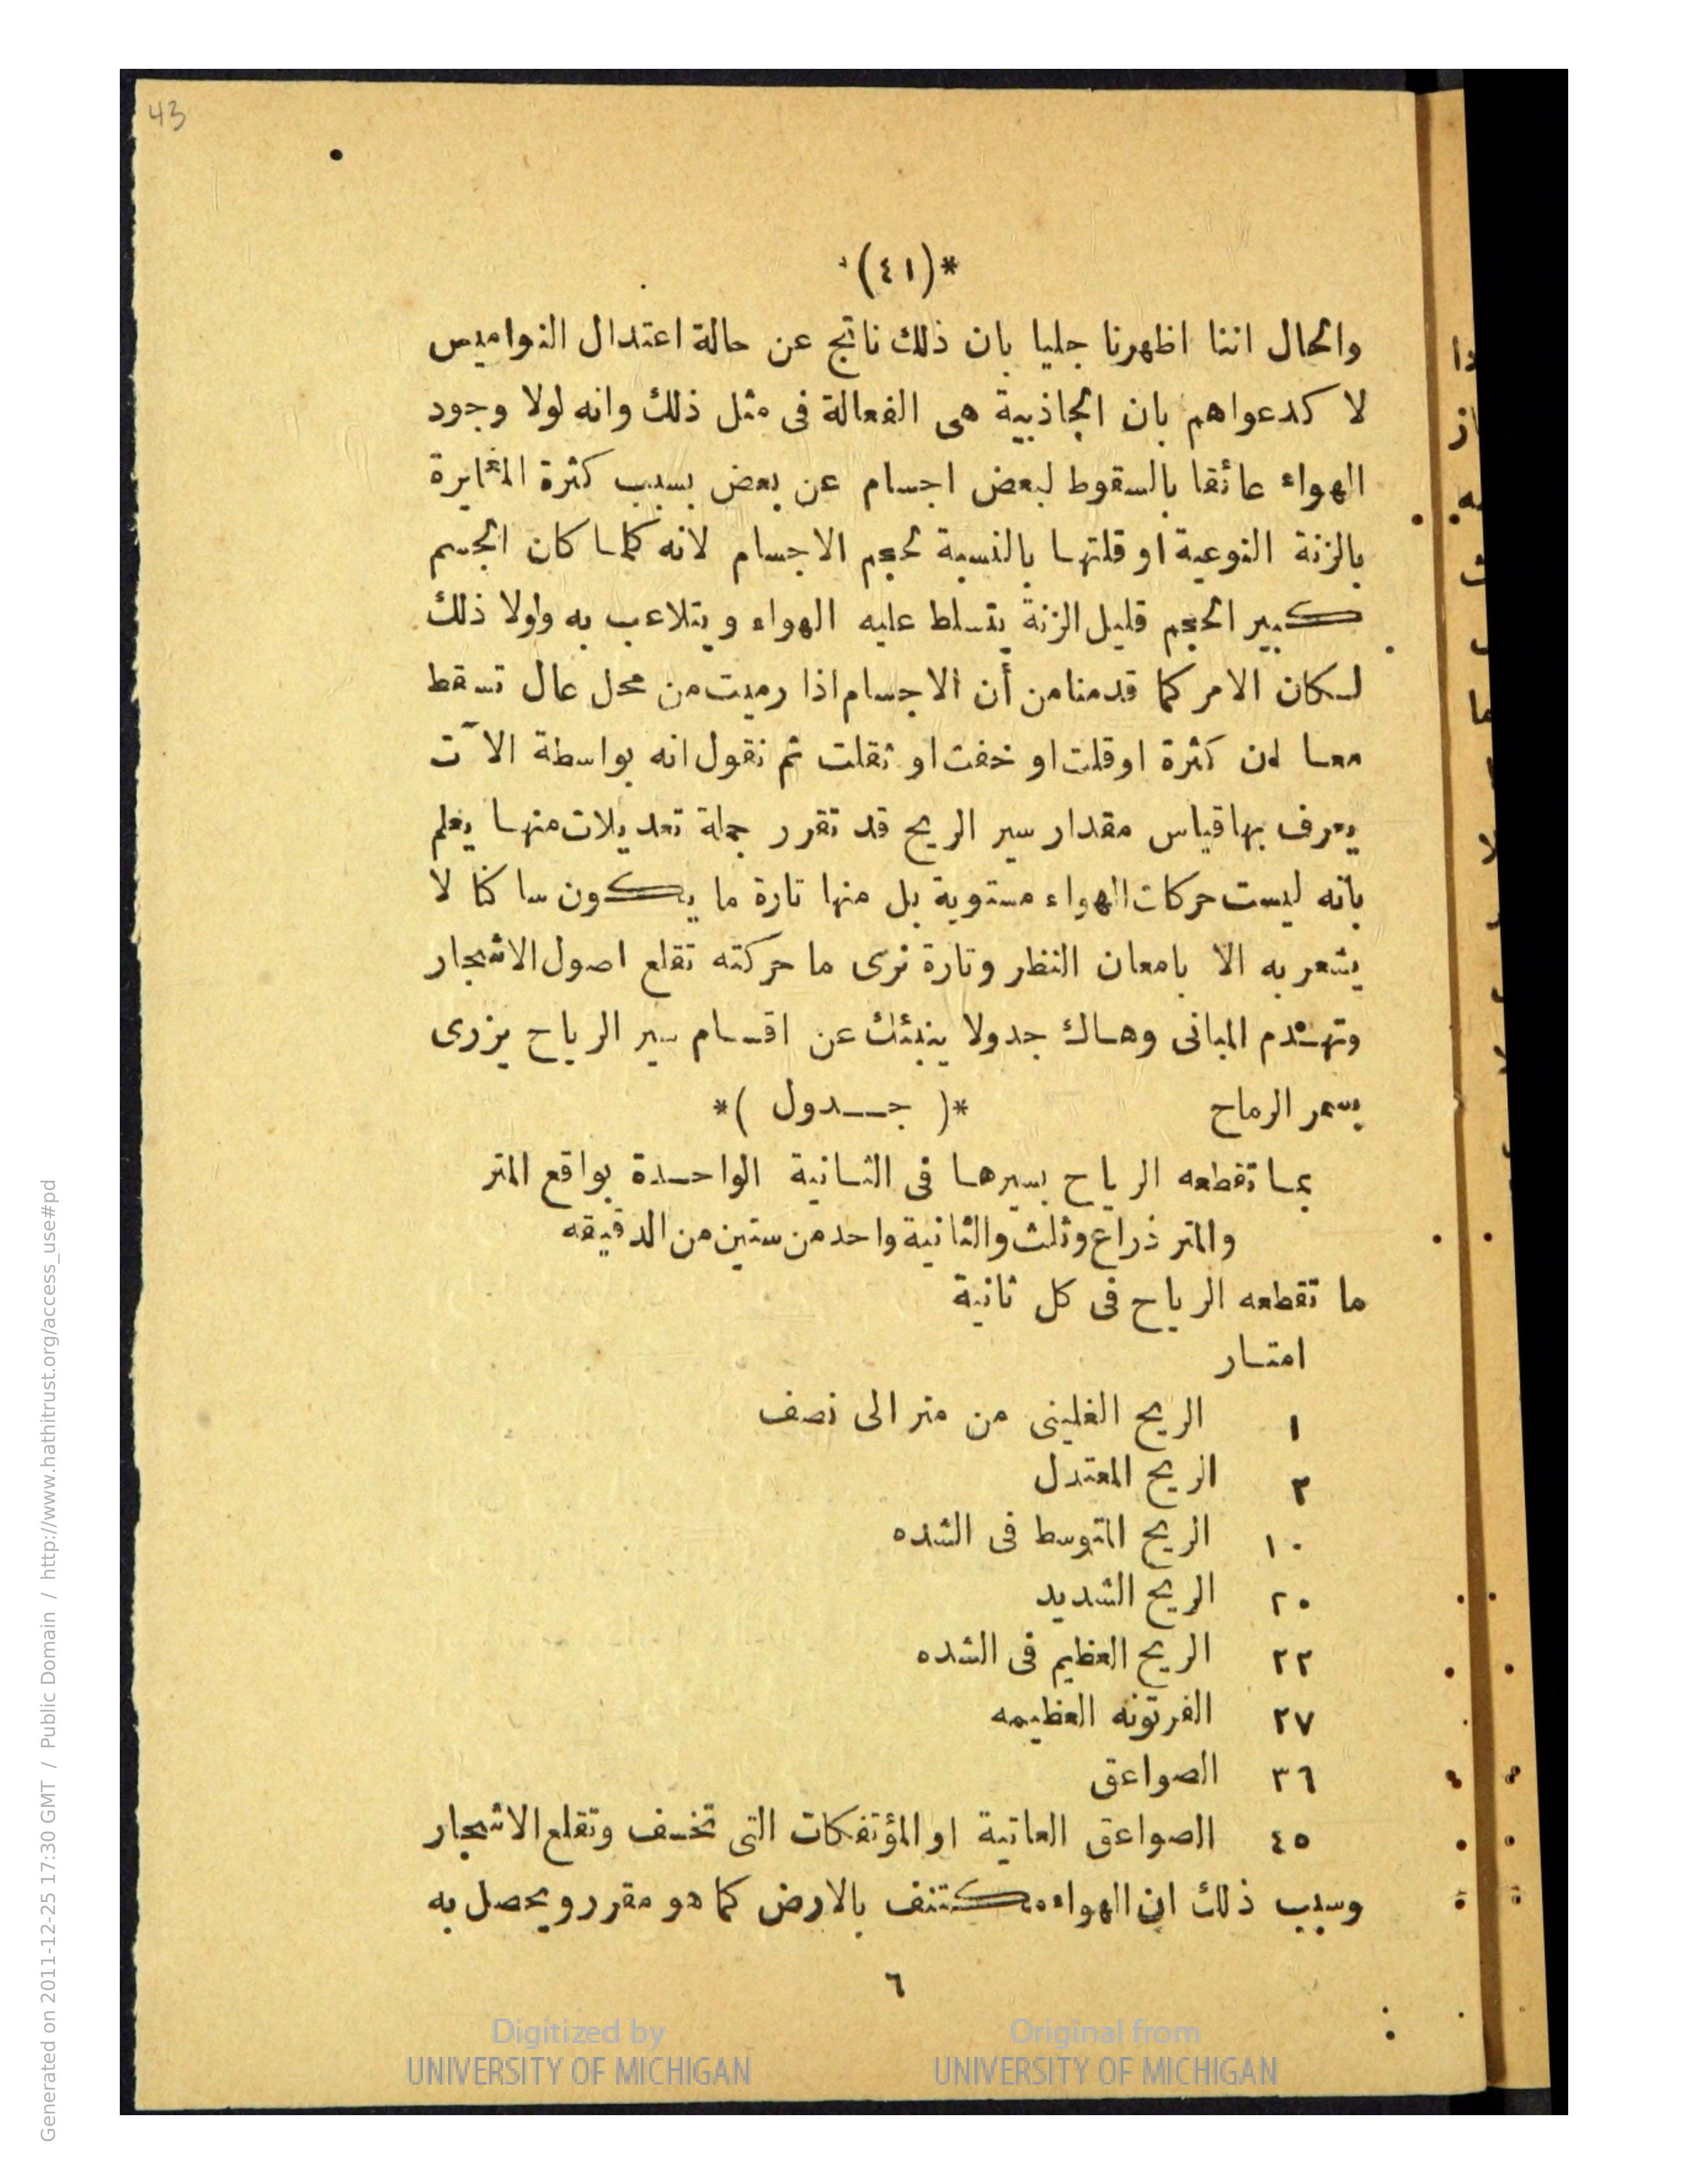 43
*(٤١)*
والحال اننا اظهرنا جليا بان ذلك ناتج عن حالة اعتدال النواميس
لا كدعواهم بان الجاذبية هى الفعالة فى مثل ذلك وانه لولا وجود
الهواء عائقا بالسقوط لبعض اجسام عن بعض بسبب كثرة المغايرة
بالزنة النوعية او قلتها بالنسبة لحجم الاجسام لانه كلما كان الجسم
كبير الحجم قليل الزنة يتسلط عليه الهواء ويتلاعب به ولولا ذلك
لكان الامر كما قدمنا من أن الاجسام اذا رميت من محل عال تسقط
معا ان كثرة او قلت او خفت او ثقلت ثم نقول انه بواسطة الآت
يعرف بها قياس مقدار سير الريح قد تقرر جملة تعديلات منها يعلم
بانه ليست حركات الهواء مستوية بل منها تارة ما يكون ساكنا لا
يشعر به الا بامعان النظر وتارة نرى ما حركته تقلع اصول الاشجار
وتهدم المبانى وهاك جدولا ينبئك عن اقسام سير الرياح يزرى
بسمر الرماح
*( جدول )*
بما تقطعه الرياح بسيرها فى الثانية الواحدة بواقع المتر
والمتر ذراع وثلث والثانية واحد من ستين من الدقيقه
ما تقطعه الرياح فى كل ثانية
امتار
١ الريح الغلينى من متر الى نصف
٢ الريح المعتدل
١٠ الريح المتوسط فى الشده
٢٠ الريح الشديد
٢٢ الريح العظيم فى الشده
٢٧ الفرتونه العظيمه
٣٦ الصواعق
٤٥ الصواعق العاتية او المؤتفكات التى تخسف وتقلع الاشجار
وسبب ذلك ان الهواء مكتنف بالارض كما هو مقرر ويحصل به
٦
Digitized by
UNIVERSITY OF MICHIGAN
Original from
UNIVERSITY OF MICHIGAN
Generated on 2011-12-25 17:30 GMT / Public Domain / http://www.hathitrust.org/access_use#pd